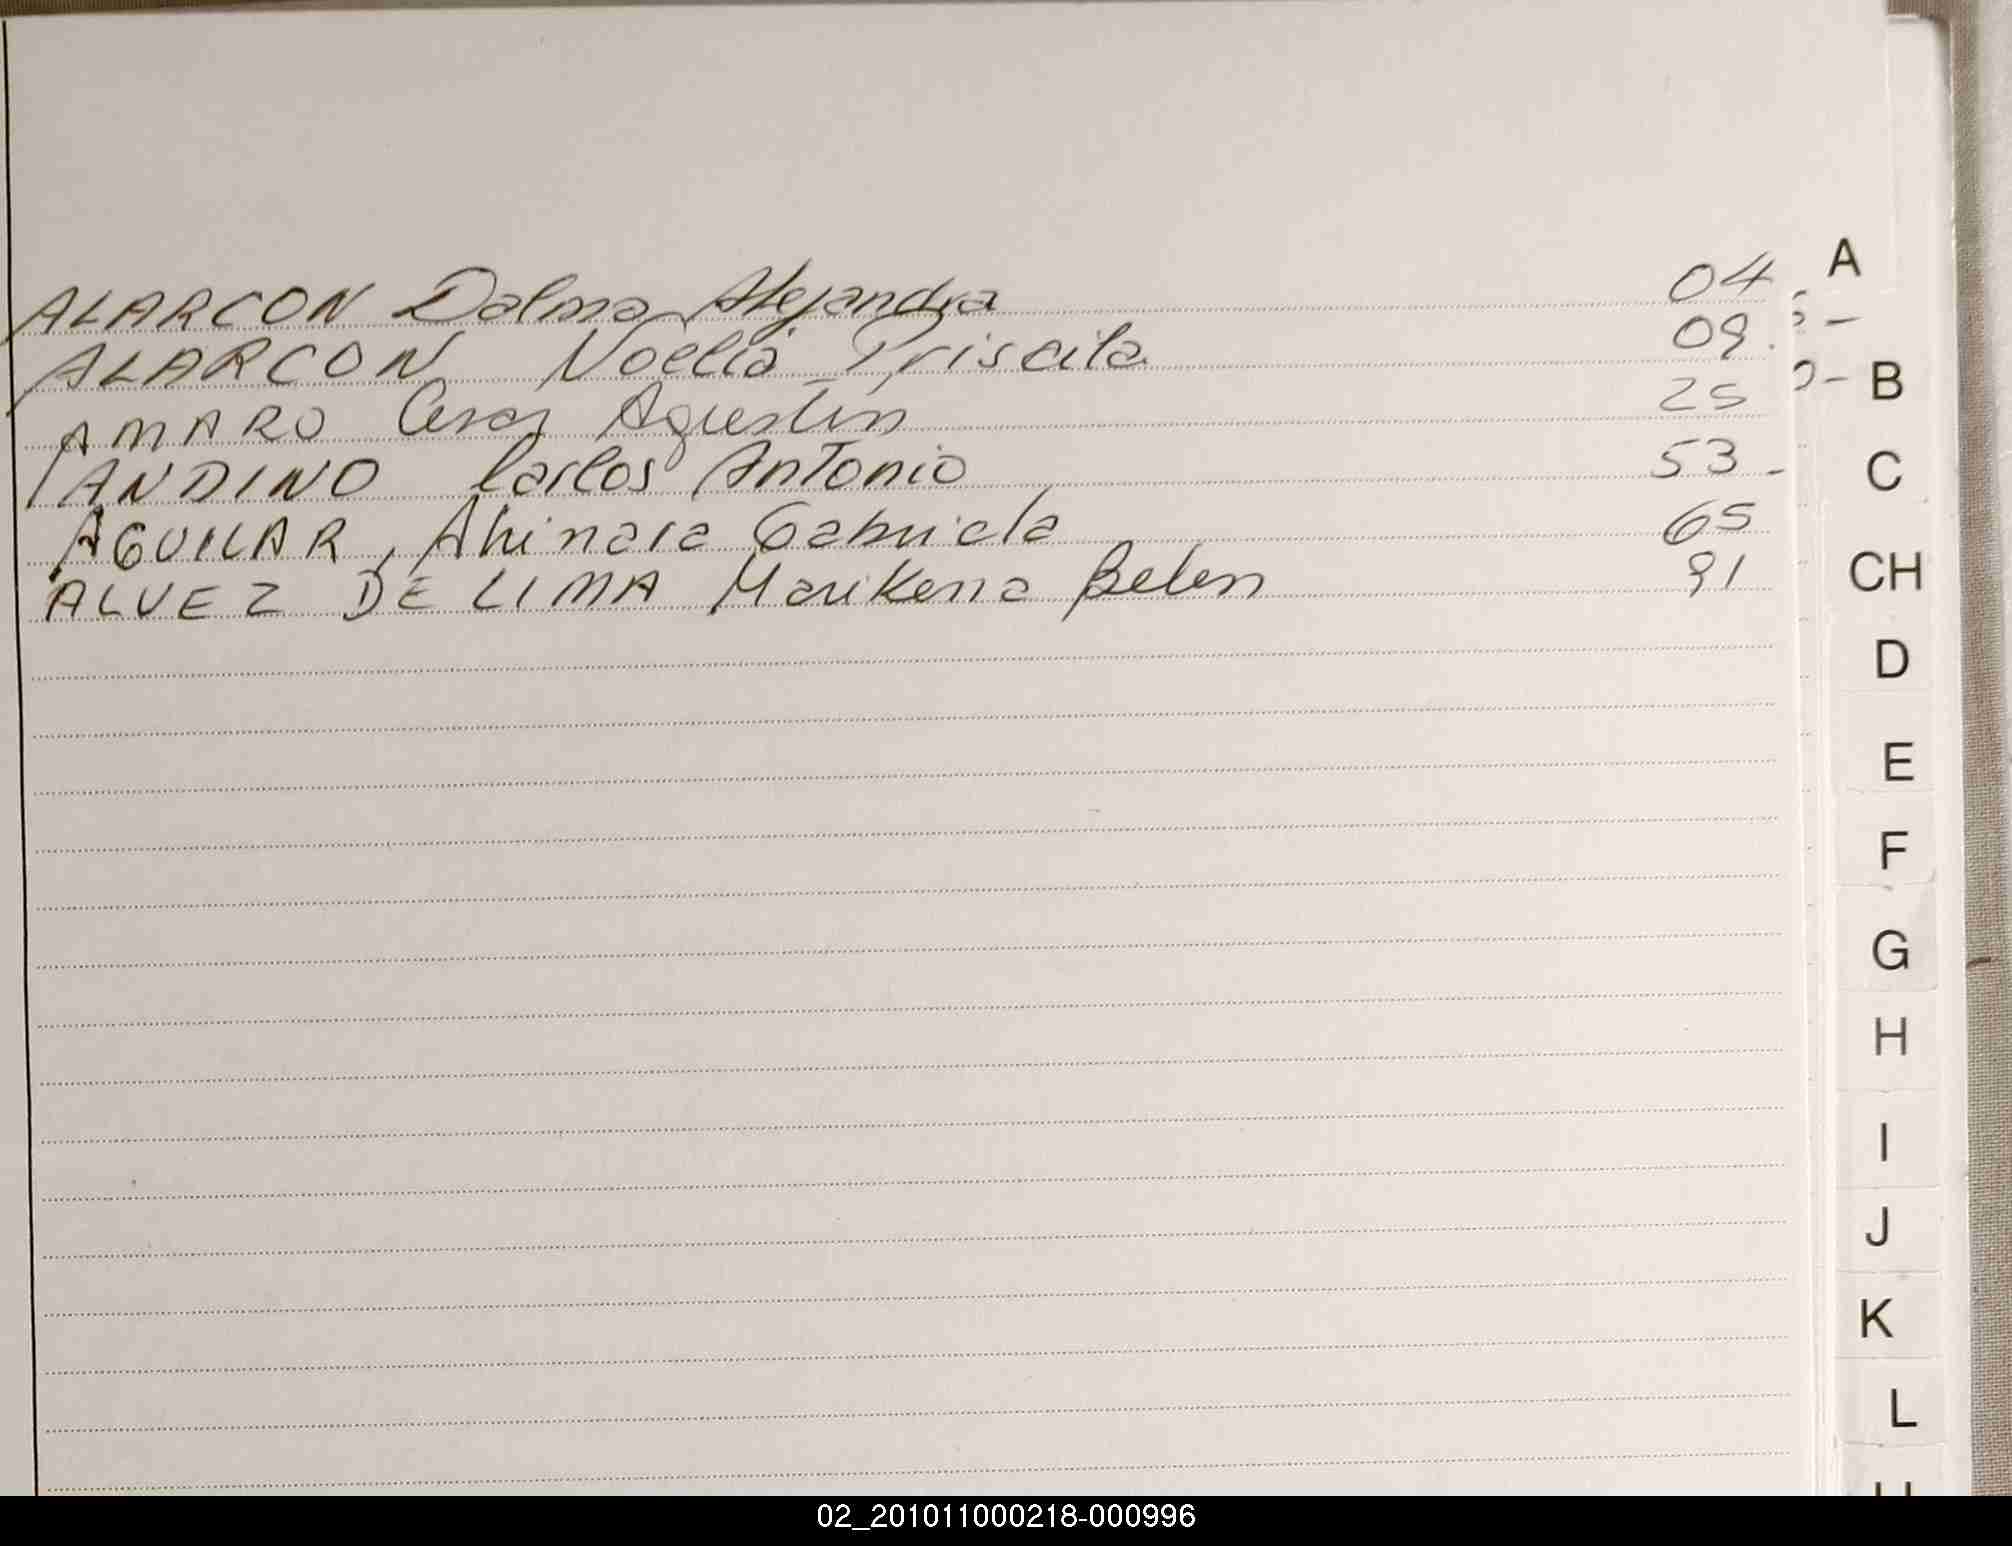 ALARCON Dalma Alejandra 04
ALARCON Noelia Priscila 09.
AMARO Cesar Agustin 25
ANDINO Carlos Antonio 53-
AGUILAR, Ahinara Gabriela 65
ALVEZ DE LIMA Marikena Belen 91
A
B
C
CH
D
E
F
G
H
I
J
K
L
02_201011000218-000996